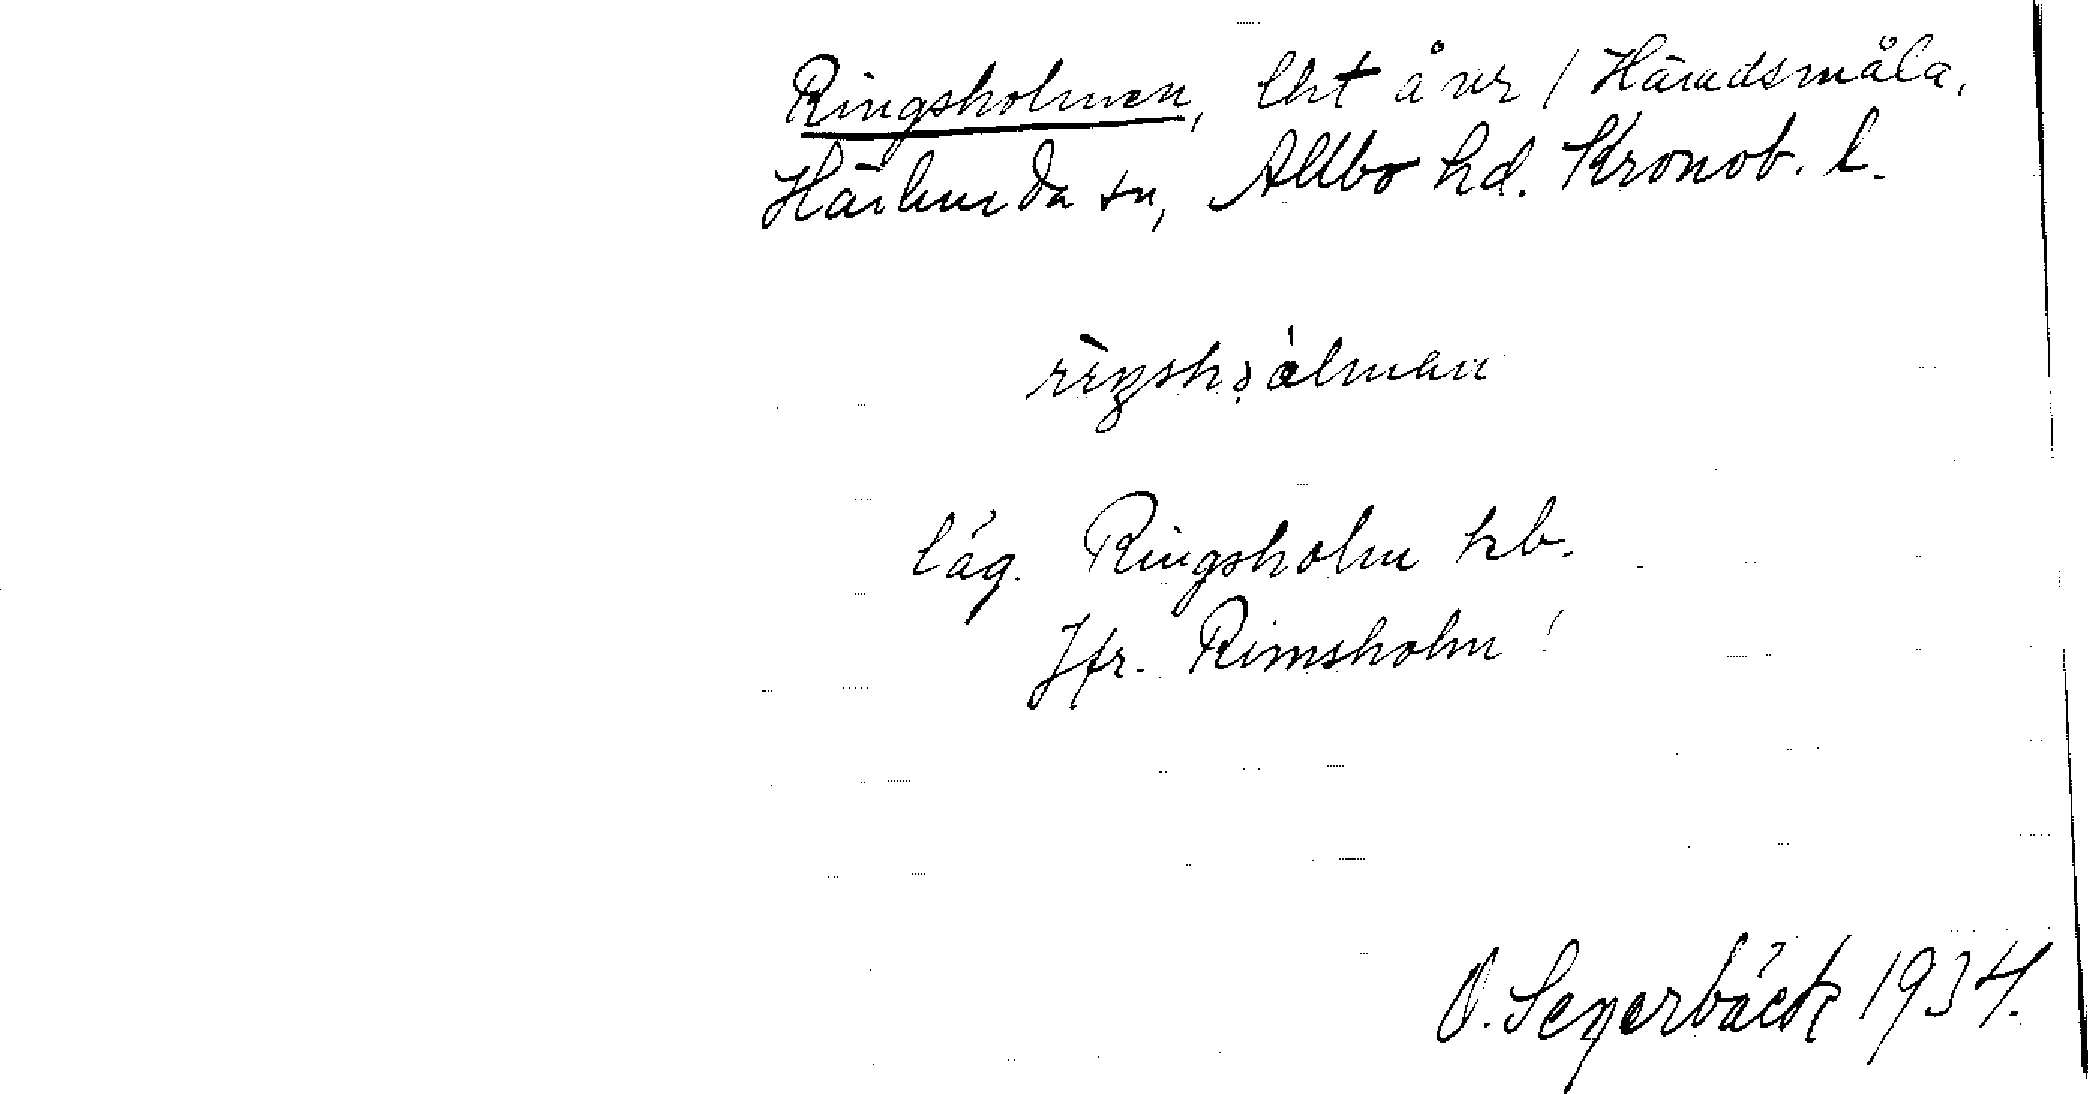 Ringsholmen, lht å nr 1 Häradsmåla,
Härlunda sn, Allbo hd. Kronob. l.
läg. Ringsholm hb.
Jfr. Rimsholm!
O. Segerbäck 1934.